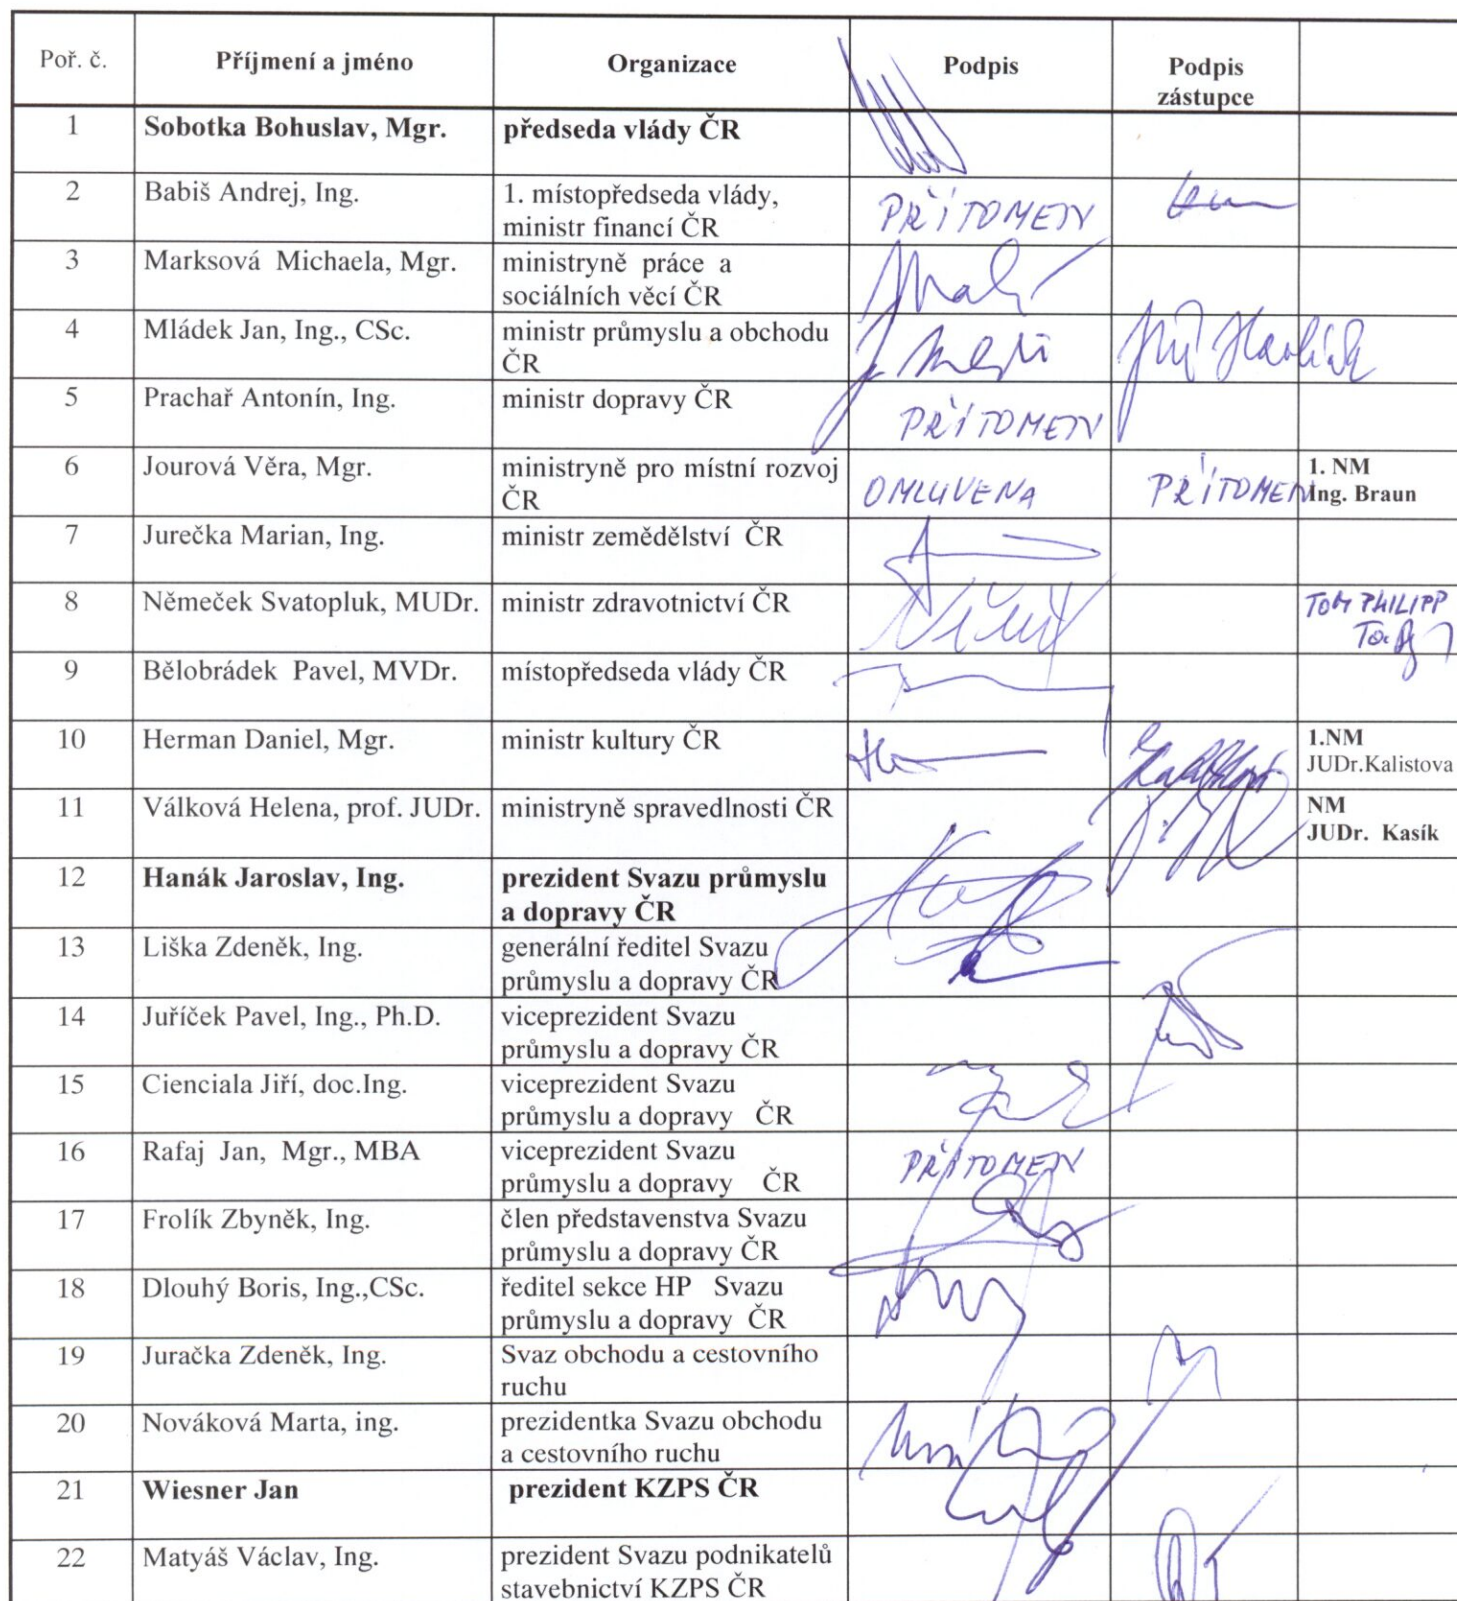 Poř. č. Příjmení a jméno Organizace Podpis Podpis
zástupce
1 Sobotka Bohuslav, Mgr. předseda vlády ČR
2 Babiš Andrej, Ing. 1. místopředseda vlády,
ministr financí ČR PŘÍTOMEN
3 Marksová Michaela, Mgr. ministryně práce a
sociálních věcí ČR
4 Mládek Jan, Ing., CSc. ministr průmyslu a obchodu
ČR
5 Prachař Antonín, Ing. ministr dopravy ČR PŘÍTOMEN
6 Jourová Věra, Mgr. ministryně pro místní rozvoj 1. NM
ČR OMLUVENA PŘÍTOMEN Ing. Braun
7 Jurečka Marian, Ing. ministr zemědělství ČR
8 Němeček Svatopluk, MUDr. ministr zdravotnictví ČR TOM PHILIPP
9 Bělobrádek Pavel, MVDr. místopředseda vlády ČR
10 Herman Daniel, Mgr. ministr kultury ČR 1.NM
JUDr.Kalistova
11 Válková Helena, prof. JUDr. ministryně spravedlnosti ČR NM
JUDr. Kasík
12 Hanák Jaroslav, Ing. prezident Svazu průmyslu
a dopravy ČR
13 Liška Zdeněk, Ing. generální ředitel Svazu
průmyslu a dopravy ČR
14 Juříček Pavel, Ing., Ph.D. viceprezident Svazu
průmyslu a dopravy ČR
15 Cienciala Jiří, doc.Ing. viceprezident Svazu
průmyslu a dopravy ČR
16 Rafaj Jan, Mgr., MBA viceprezident Svazu
průmyslu a dopravy ČR PŘÍTOMEN
17 Frolík Zbyněk, Ing. člen představenstva Svazu
průmyslu a dopravy ČR
18 Dlouhý Boris, Ing.,CSc. ředitel sekce HP Svazu
průmyslu a dopravy ČR
19 Juračka Zdeněk, Ing. Svaz obchodu a cestovního
ruchu
20 Nováková Marta, ing. prezidentka Svazu obchodu
a cestovního ruchu
21 Wiesner Jan prezident KZPS ČR
22 Matyáš Václav, Ing. prezident Svazu podnikatelů
stavebnictví KZPS ČR